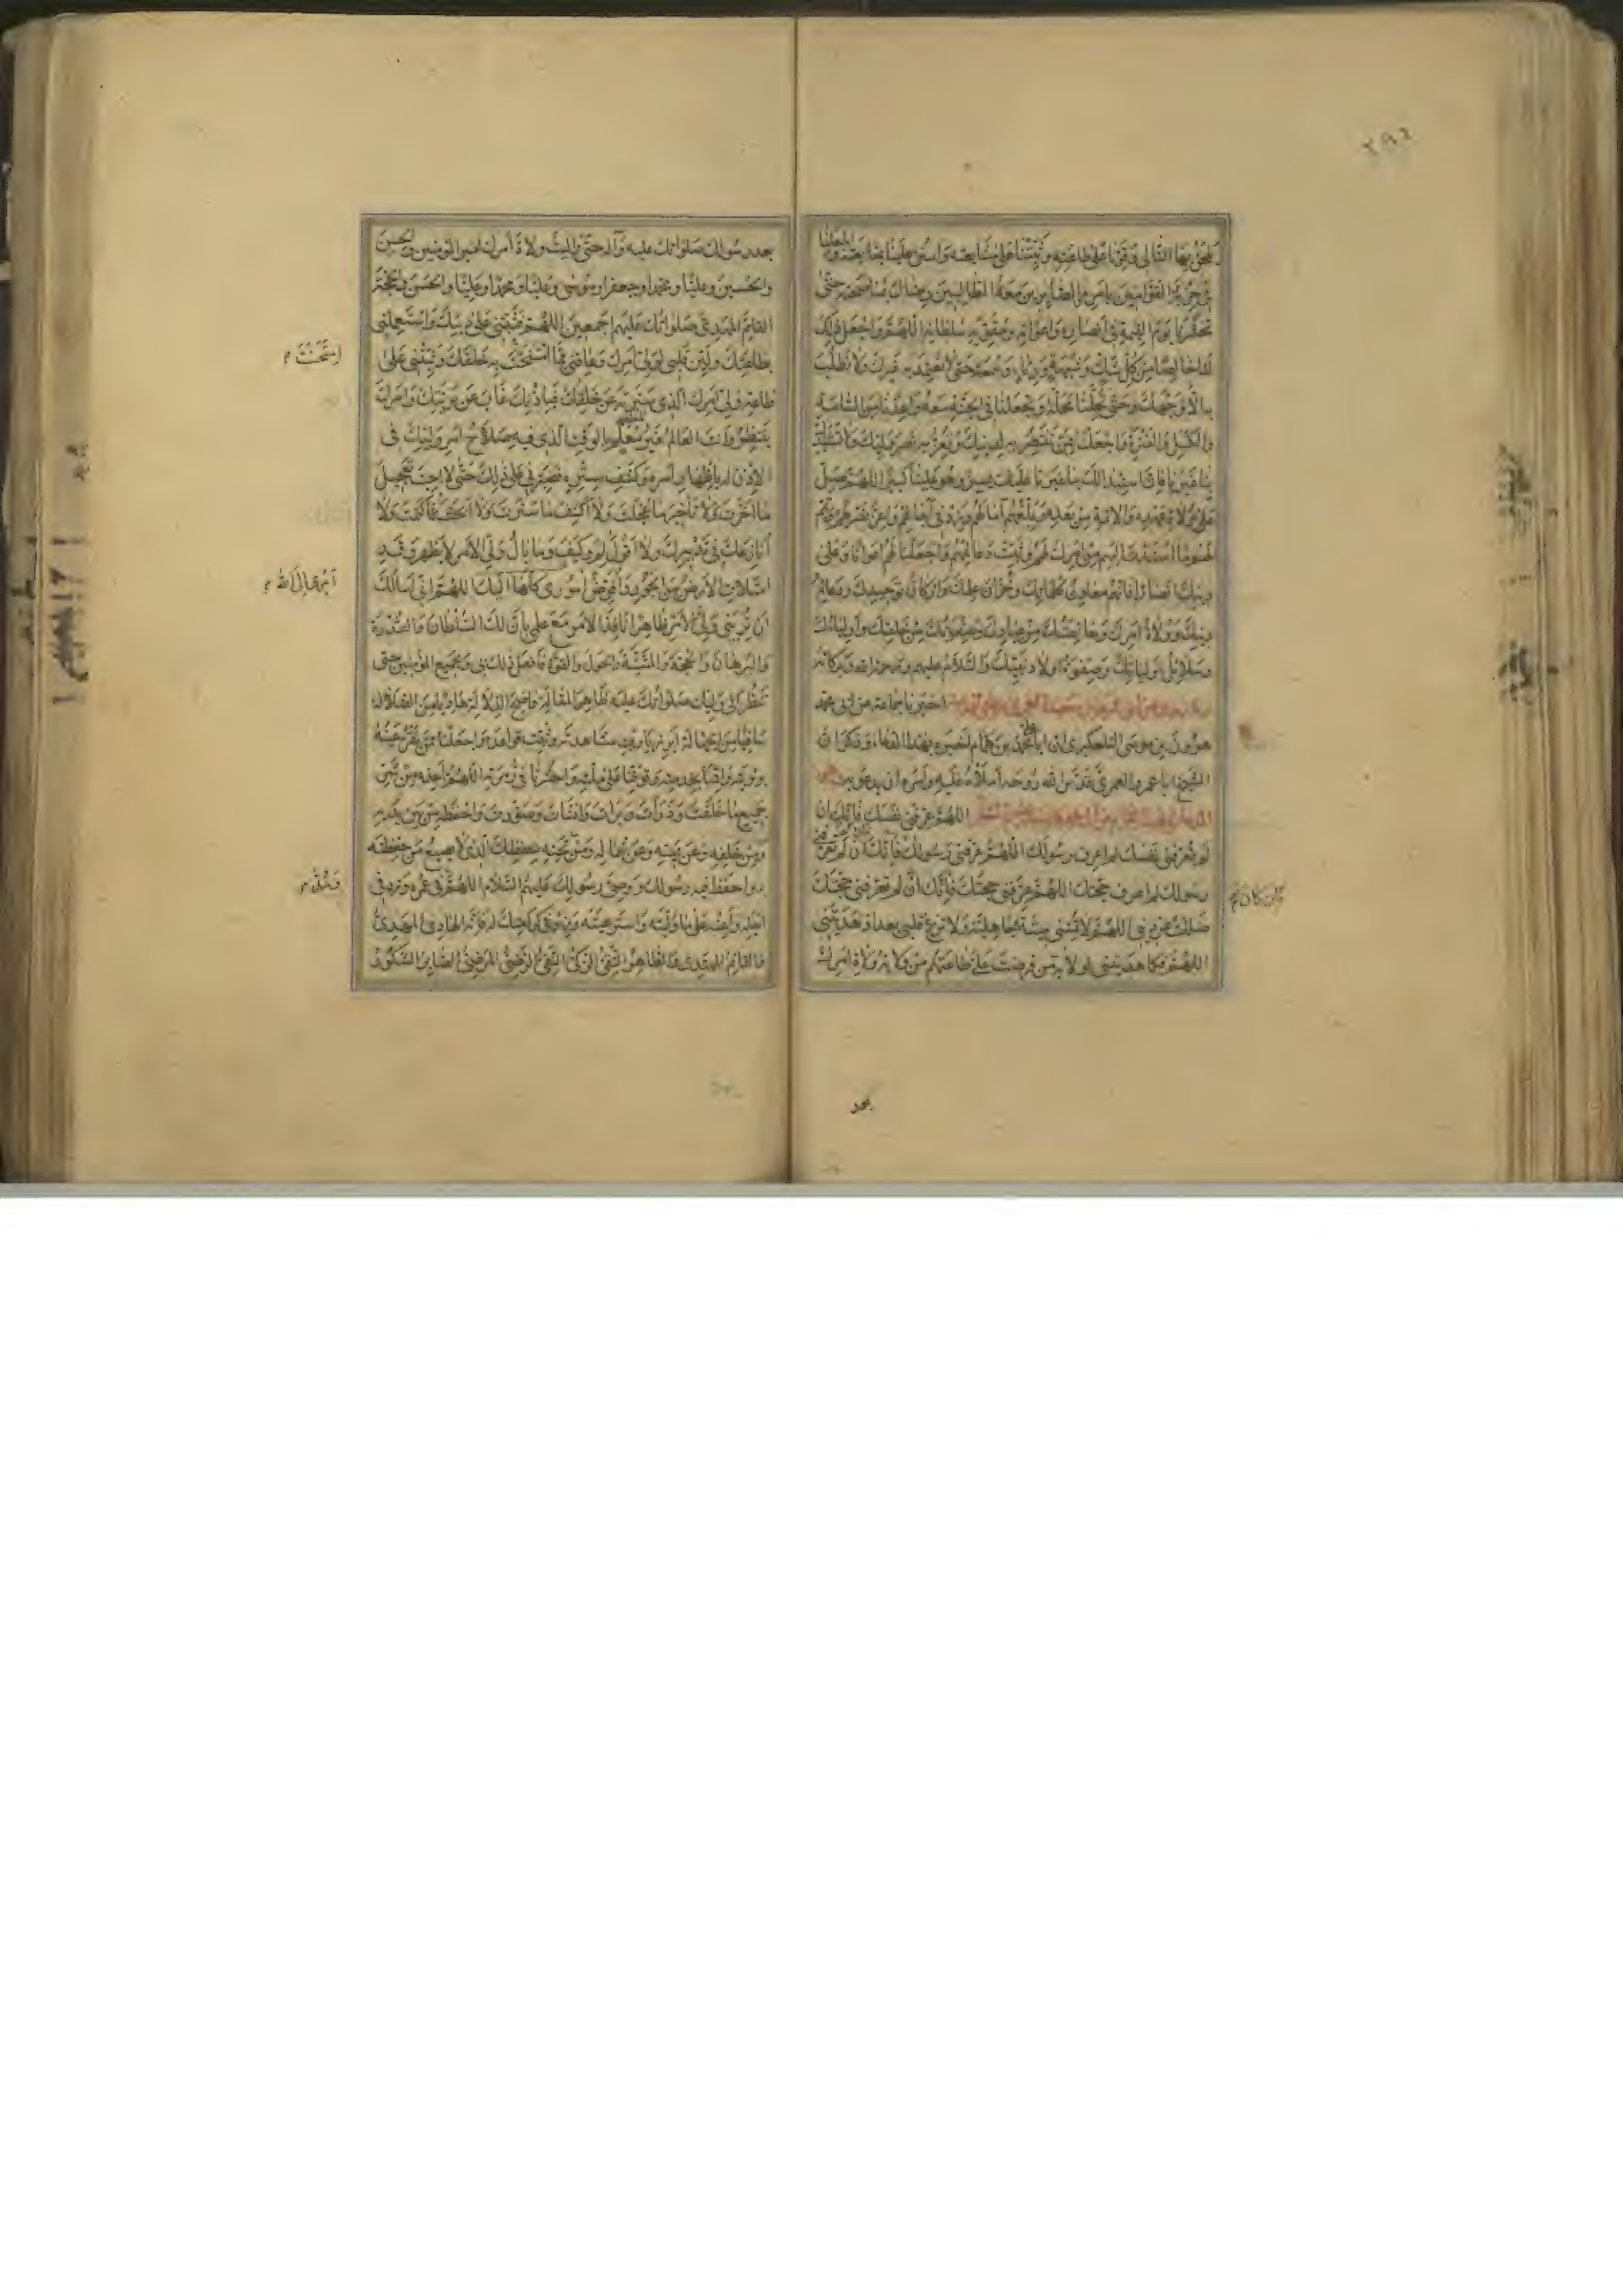 ٢٩٤
يلحق بها التالي وقونا على طاعته وثبتنا على متابعته وامنن علينا بمتابعته واجعلنا
في حزبه القوامين بامره الصابرين معه الطالبين رضاك بمناصحته حتى
تحشرنا يوم القيمة في انصاره واعوانه ومقوية سلطانه اللهم واجعل ذلك
لنا خالصا من كل شك وشبهة ورياء وسمعة حتى لا نعتمد به غيرك ولا نطلب
به الا وجهك وحتى تحلنا محله وتجعلنا في الجنة معه واعذنا من السامة
والكسل والفترة واجعلنا ممن تنتصر به لدينك وتعز به نصر وليك ولا تستبدل
بنا غيرنا فان استبدالك بنا غيرنا عليك يسير وهو علينا كبير اللهم صل
على ولاة عهده والائمة من بعده وبلغهم آمالهم وزد في آجالهم واعز نصرهم وتمم
لهم ما اسندت اليهم من امرك لهم وثبت دعائمهم واجعلنا لهم اعوانا وعلى
دينك انصارا فانهم معادن كلماتك وخزان علمك واركان توحيدك ودعائم
دينك وولاة امرك وخالصتك من عبادك وصفوتك من خلقك واولياؤك
وسلائل اوليائك وصفوة اولاد نبيك والسلام عليهم ورحمة الله وبركاته
اخبرنا جماعة عن ابي محمد
هرون بن موسى التلعكبري ان ابا علي محمد بن همام اخبره بهذا الدعاء وذكر ان
الشيخ ابا عمرو العمري قدس الله روحه املاه عليه وامره ان يدعو به
اللهم عرفني نفسك فانك ان
لم تعرفني نفسك لم اعرف رسولك اللهم عرفني رسولك فانك ان لم تعرفني
رسولك لم اعرف حجتك اللهم عرفني حجتك فانك ان لم تعرفني حجتك
ضللت عن ديني اللهم لا تمتني ميتة جاهلية ولا تزغ قلبي بعد اذ هديتني
اللهم فكما هديتني لولاية من فرضت على طاعتهم من ولاية ولاة امرك
بعد
بعد رسولك صلواتك عليه وآله حتى واليت ولاة امرك امير المؤمنين والحسن
والحسين وعليا ومحمدا وجعفرا وموسى وعليا ومحمدا وعليا والحسن والحجة
القائم المهدي صلواتك عليهم اجمعين اللهم فثبتني على دينك واستعملني
بطاعتك ولين قلبي لولي امرك وعافني مما امتحنت به خلقك وثبتني على
امتحنت م
طاعة ولي امرك الذي سترته عن خلقك فباذنك غاب عن بريتك وامرك
ينتظر وانت العالم غير معلم بالوقت الذي فيه صلاح امر وليك في
الاذن له باظهار امره وكشف ستره فصبرني على ذلك حتى لا احب تعجيل
ما اخرت ولا تاخير ما عجلت ولا اكشف ما سترت ولا ابحث عما كتمت ولا
انازعك في تدبيرك ولا اقول لم وكيف وما بال ولي الامر لا يظهر وقد
امتلات الارض من الجور وافوض اموري كلها اليك اللهم اني اسالك
ان تريني ولي الامر ظاهرا نافذا لامر مع علمي بان لك السلطان والقدرة
والبرهان والحجة والمشية والحول والقوة فافعل ذلك بي وبجميع المؤمنين حتى
ننظر الى وليك صلواتك عليه ظاهر المقالة واضح الدلالة هاديا من الضلالة
شافيا من الجهالة ابرز يا رب مشاهدته وثبت قواعده واجعلنا ممن تقر عينه
برؤيته واقمنا بخدمته وتوفنا على ملته واحشرنا في زمرته اللهم اعذه من شر
جميع ما خلقت وذرات وبرات وانشات وصورت واحفظه من بين يديه
ومن خلفه وعن يمينه وعن شماله ومن تحته بحفظك الذي لا يضيع من حفظته
به واحفظ فيه رسولك ووصي رسولك عليهم السلام اللهم في عمره وزد في
ومد م
اجله واعنه على ما وليته واسترعيته وزد في كرامتك له فانه الهادي المهدي
والقائم المهتدي والطاهر التقي الزكي النقي الرضي المرضي الصابر الشكور